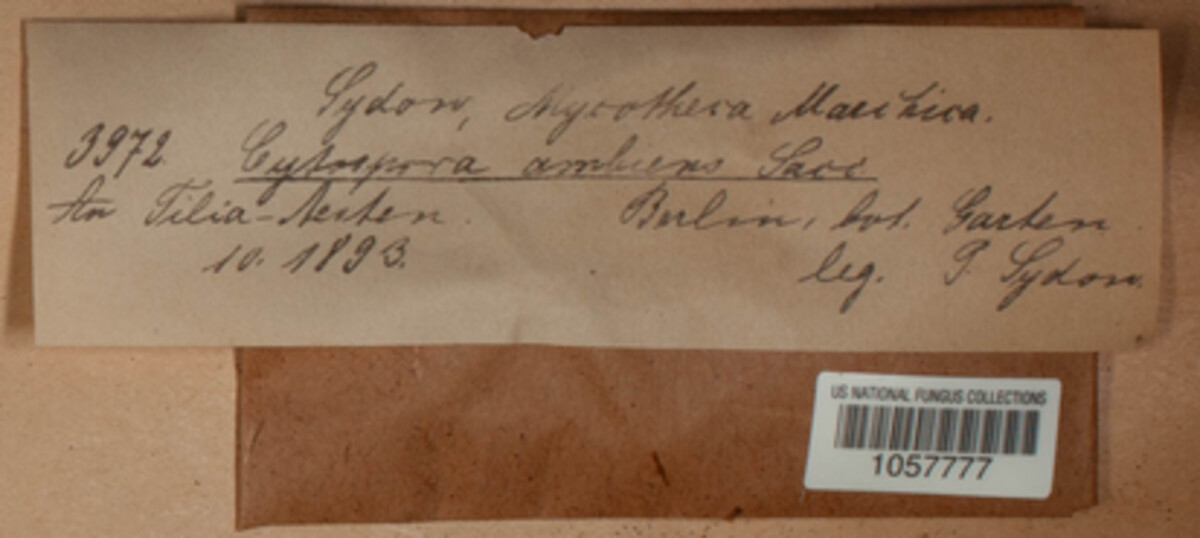 Sydow, Mycotheca Marchica.
3972. Cytospora ambiens Sacc
An Tilia-Aesten. Berlin, bot. Garten.
10. 1893. leg. P. Sydow.
US NATIONAL FUNGUS COLLECTIONS
1057777